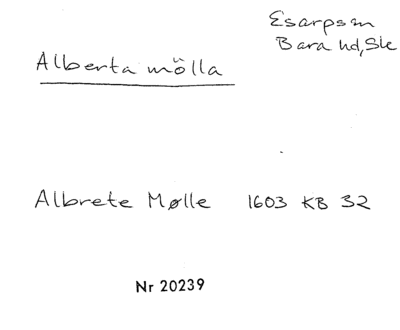 Esarpsm
Bara hd, Ske
Alberta mölla
Albrete Mølle 1603 KB 32
Nr 20239